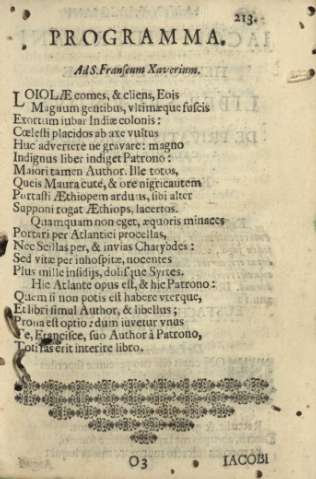 213.
PROGRAMMA.
Ad S. Franscum Xaverium.
LOIOLÆ comes, & cliens, Eois
Magnum gentibus, vltimæque fuscis
Exortum iubar Indiæ colonis:
Cœlesti placidos ab axe vultus
Huc advertere ne gravare: magno
Indignus liber indiget Patrono:
Maiori tamen Author. Ille totos,
Queis Maura cute, & ore nigricantem
Portasti Æthiopem arduus, sibi alter
Supponi rogat Æthiops, lacertos.
Quamquam non eget, æquoris minaces
Portari per Atlantici procellas,
Nec Scillas per, & invias Charybdes:
Sed vitæ per inhospitæ, nocentes
Plus mille insidijs, dolisque Syrtes.
Hic Atlante opus est, & hic Patrono:
Quem si non potis est habere vterque,
Et libri simul Author, & libellus;
Prona est optio: dum iuvetur vnus
Te, Francisce, suo Author à Patrono,
Toti fas erit interire libro.
O3 IACOBI